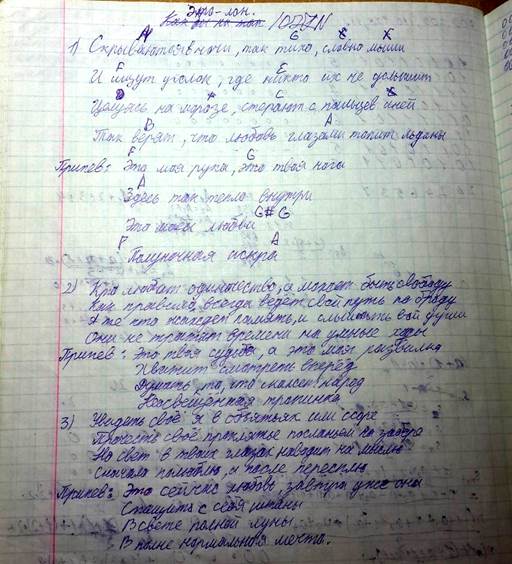 Эдю-лон.
Как бы не так /ODIN
A G
1) Скрываются в ночи, так тихо, словно мыши
F E
И ищут уголок, где никто их не услышит
D C
Целуясь на морозе, стирают с пальцев иней
B A
Так верят, что любовь глазами топит льдины
F G
Припев: Это моя рука, это твоя нога
A
Здесь так тепло внутри
G# G
Это моей любви
F A
Полуночная искра
2) Кто любит одиночество, а может быть свободу
Как правило, всегда ведёт свой путь по броду
А те кто жаждет память, и слышать вой души
Они не тратят времени на умные ходы
Припев: Это твоя судьба, а это моя развилка
Хватит смотреть вперёд
Думать то, что скажет народ
Неосвещённая тропинка
3) Увидеть своё я в объятьях или ссоре
Прочесть своё проклятье посланьем на заборе
Но свет в твоих глазах наводит на мысли
Сначала полюблю, а после
Припев: Это сейчас любовь, завтра уже она
Стащить с себя штаны
В свете полной луны
Вполне нормальная мечта.